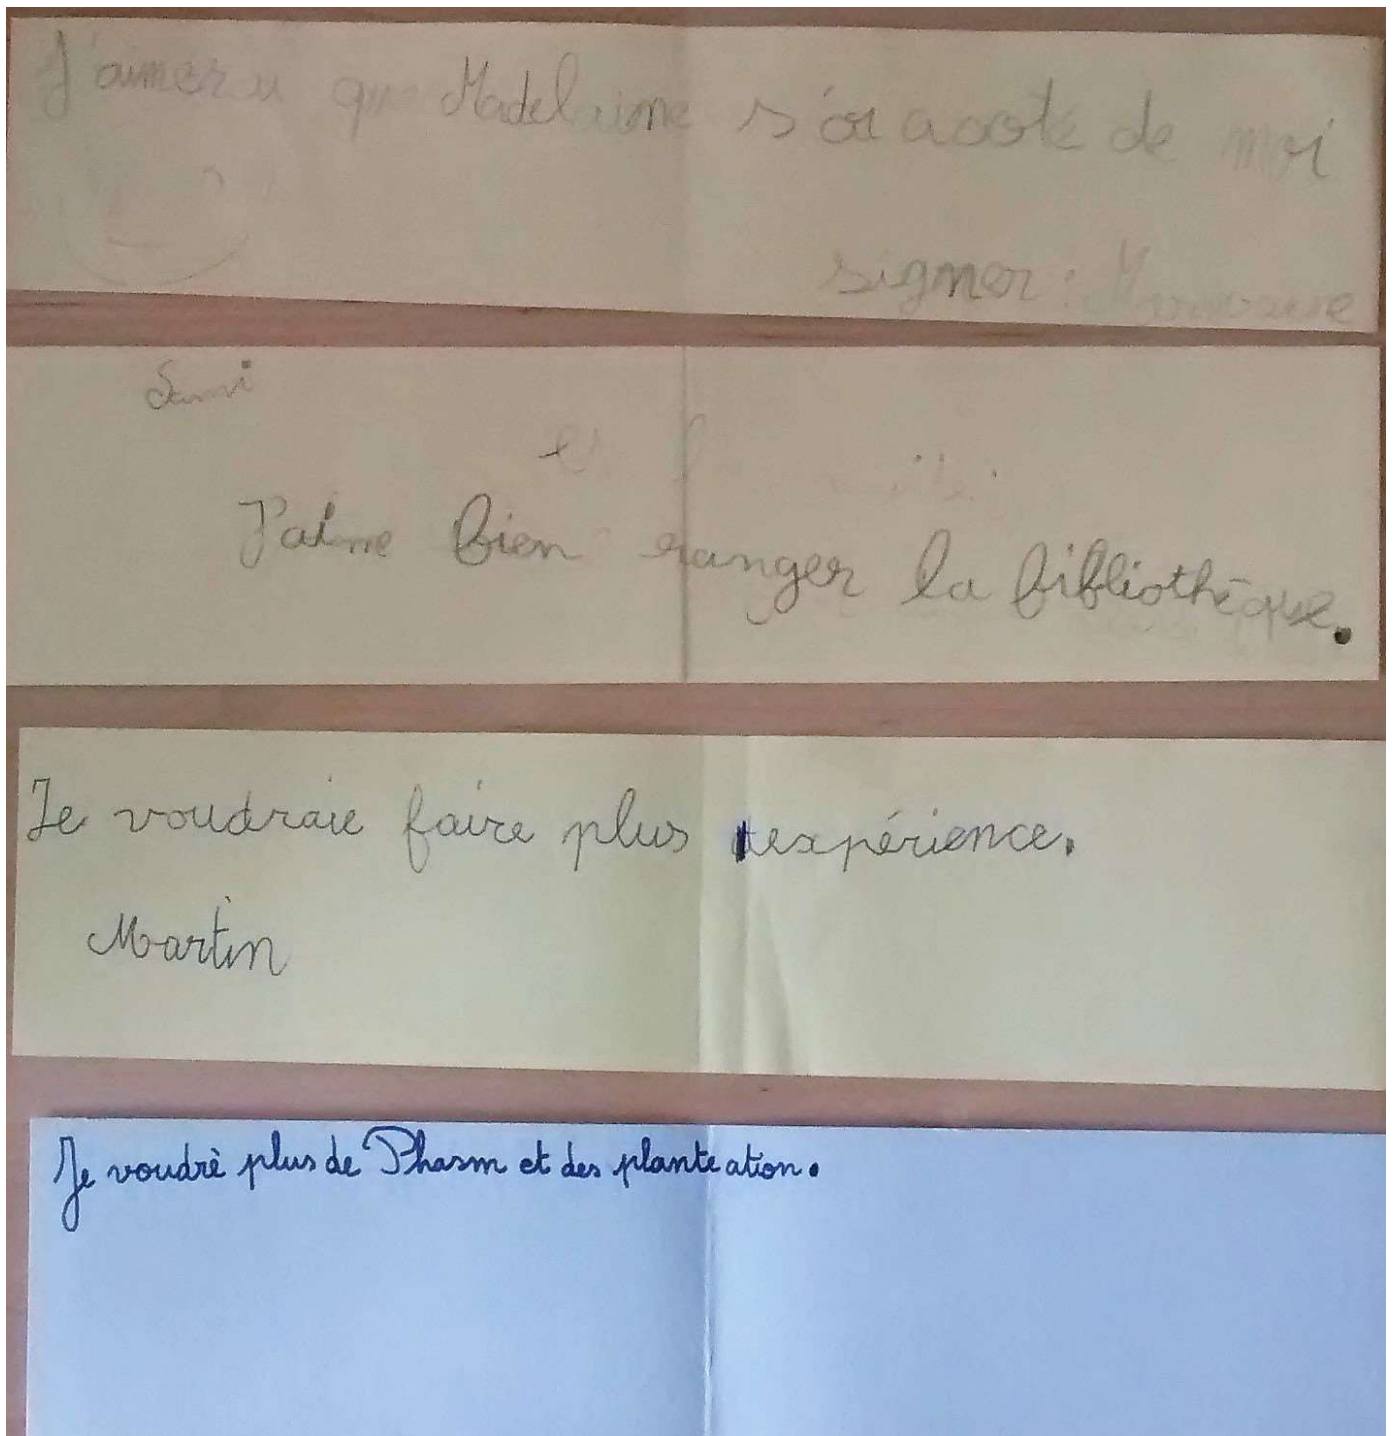 J'aimerai que Madelaine s'oi a coté de moi
signer :
Sami
J'aime bien ranger la bibliothèque.
Je voudraie faire plus d'expérience.
Martin
Je voudrè plus de Phasm et des planteation.